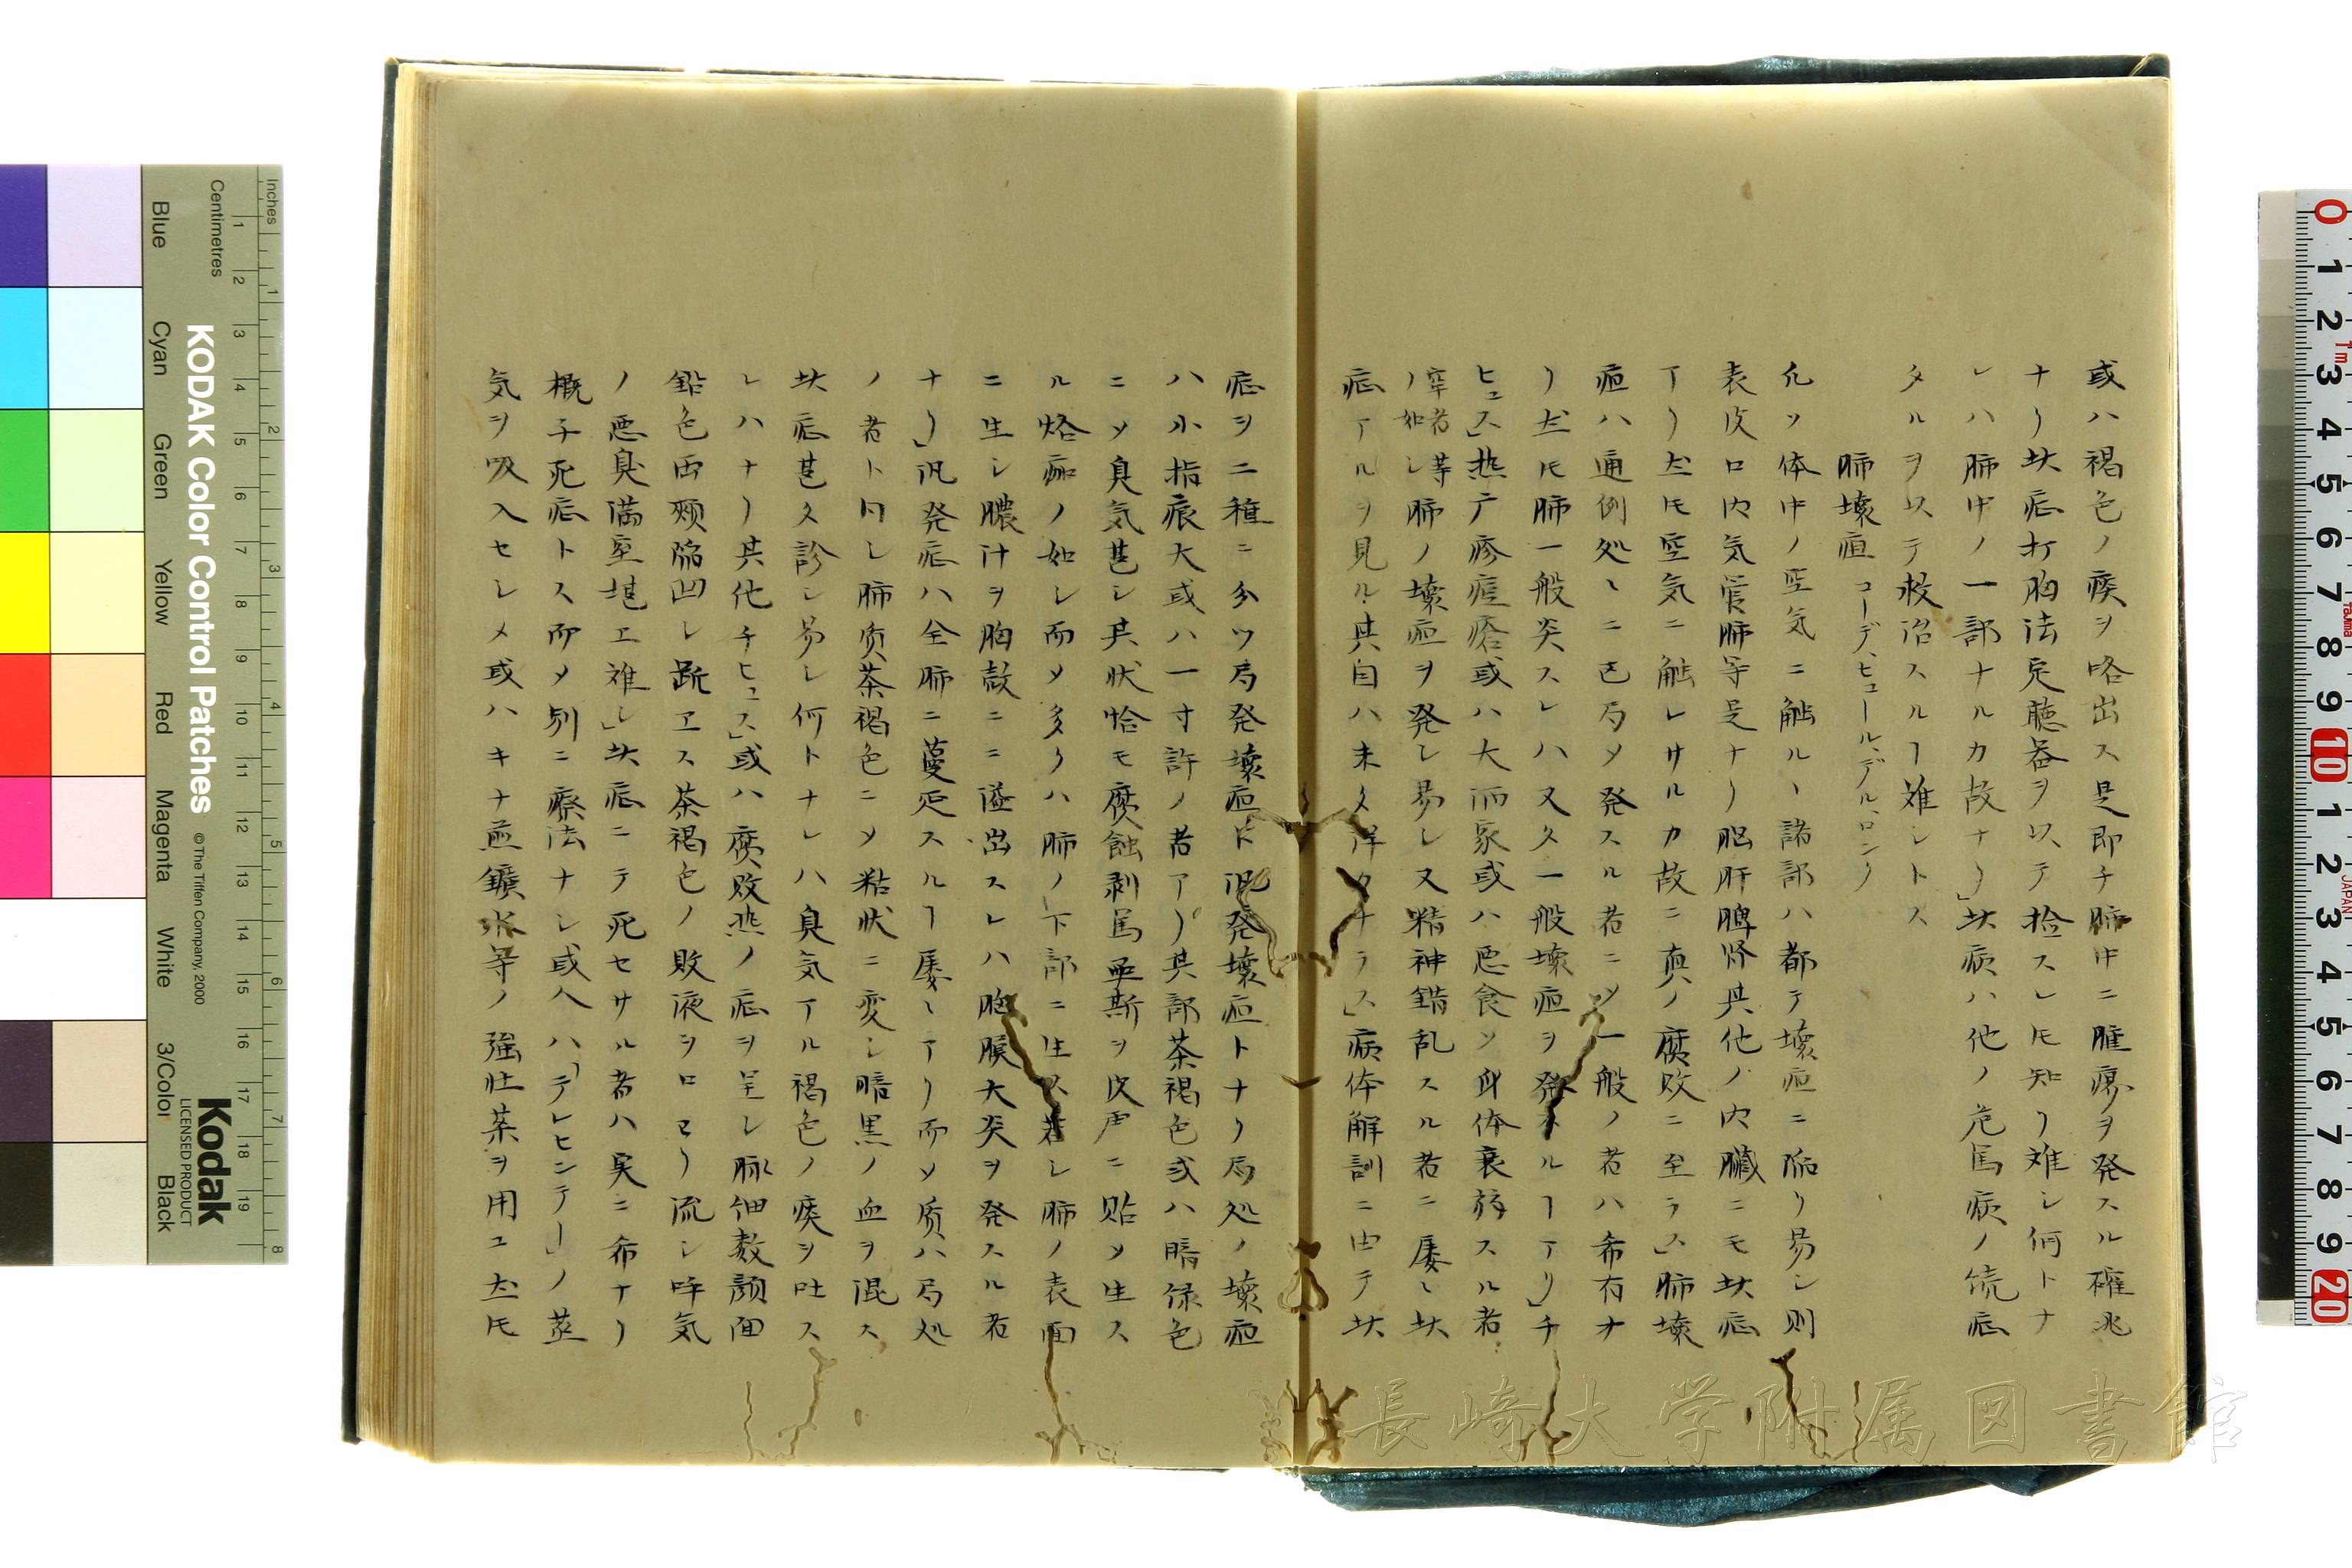 或ハ褐色ノ痰ヲ咯出ス是即チ肺中ニ腫瘍ヲ発スル確兆
ナリ此症打胸法定聴器ヲ以テ捡スレ𪜈知リ難シ何トナ
レハ肺中ノ一部ナルカ故ナリ」此病ハ他ノ危篤病ノ続症
タルヲ以テ救治スルヿ難シトス
肺壊疽 コーデ、ヒュール、デル、ロング
凡ソ体中ノ空気ニ触ルヽ諸部ハ都テ壊疽ニ陥リ易シ則
表皮口内気管肺等是ナリ脳肝脾腎其他ノ内臓ニモ此症
アリ𪜈空気ニ触レサルカ故ニ真ノ腐敗ニ至ラス」肺壊
疽ハ通例処々ニ己局メ発スル者ニソ一般ノ者ハ希有ナ
リ𪜈肺一般炎スレハ又タ一般壊疽ヲ発スルヿアリ」チ
ヒュス」熱疹痘瘡或ハ大酒家或ハ悪食ソ身体衰弱スル者
窂者等ノ如シ肺ノ壊疽ヲ発シ易シ又精神錯乱スル者ニ屡々此
症アルヲ見ル其自ハ未タ詳カナラス」病体解訓ニ由テ此
症ヲ二種ニ分ツ局発壊疽ト汎発壊疽トナリ局処ノ壊疽
ハ小指痕大或ハ一寸許ノ者アリ其部茶褐色或ハ暗緑色
ニソ臭気甚シ其状恰モ腐蝕剥篤亜斯ヲ皮膚ニ貼ソ生ス
ル烙痂ノ如シ而ソ多クハ肺ノ下部ニ生ス若シ肺ノ表面
ニ生シ膿汁ヲ胸殻ニニ溢出スレハ胸膜大炎ヲ発スル者
ナリ」汎発症ハ全肺ニ蔓延スルヿ屡々アリ而ソ质ハ局処
ノ者ト同シ肺质茶褐色ニソ粘状ニ変シ暗黒ノ血ヲ混ス
此症甚タ診シ易シ何トナレハ臭気アル褐色ノ痰ヲ吐ス
レハナリ其他チヒュス」或ハ腐敗熱ノ症ヲ呈シ脉細数顔面
鉛色両頬陥凹シ跪ヱス茶褐色ノ敗液ヲ口ヨリ流シ呼気
ノ悪臭満室堪エ難シ」此症ニテ死セサル者ハ実ニ希ナリ
概子死症トス而ソ別ニ療法ナシ或人ハ「テレヒンテーノ蒸
気ヲ吸入セシメ或ハキナ並鑛水等ノ強壮薬ヲ用ユ𪜈